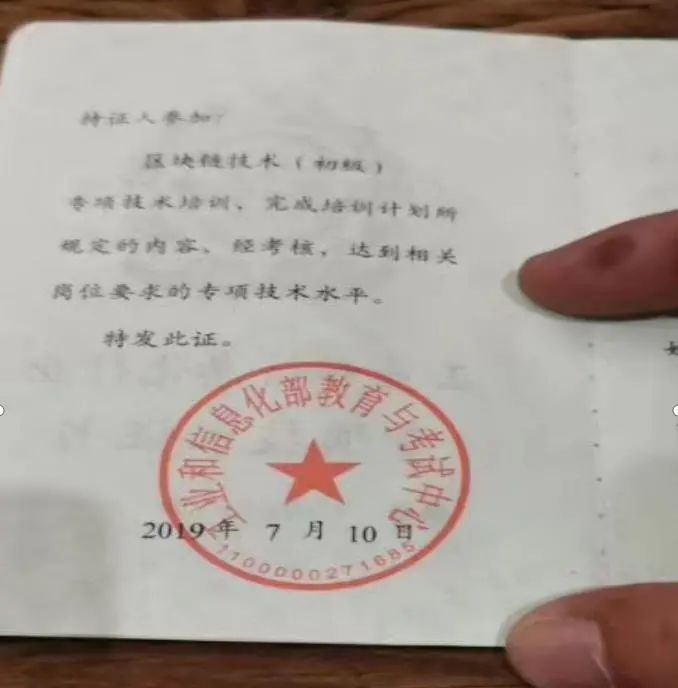 持证人参加：
区块链技术（初级）
专项技术培训、完成培训计划所
规定的内容、经考核，达到相关
岗位要求的专项技术水平。
特发此证。
工业和信息化部教育与考试中心
2019 年 7 月 10 日
1100000271685